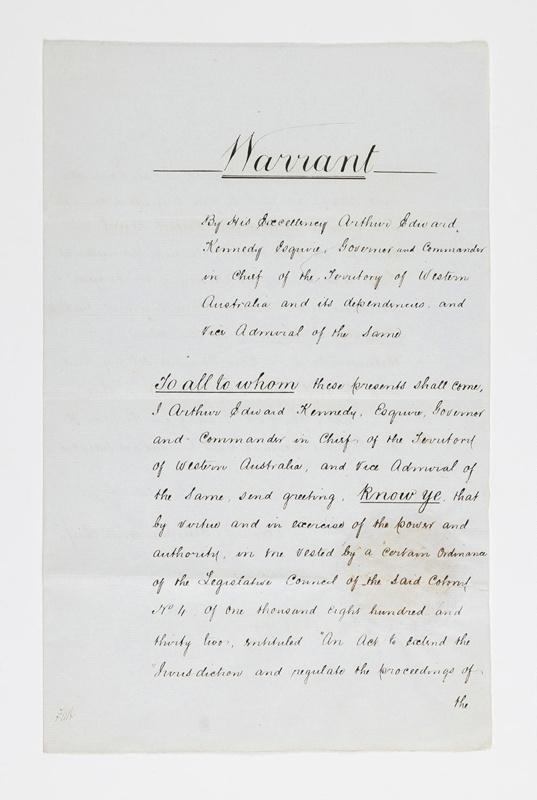 Warrant
By His Excellency Arthur Edward
Kennedy Esquire, Governor and Commander
in Chief of the Territory of Western
Australia and its dependencies and
Vice Admiral of the Same
To all to whom these presents shall come,
I Arthur Edward Kennedy, Esquire, Governor
and Commander in Chief of the Territory
of Western Australia, and Vice Admiral of
the Same, send greeting, Know Ye, that
by virtue and in exercise of the power and
authority, in me vested by a certain Ordinance
of the Legislative Council of the said Colony
No 4, of one thousand eight hundred and
thirty two, entituled "An Act to extend the
"Jurisdiction and regulate the proceedings of
the